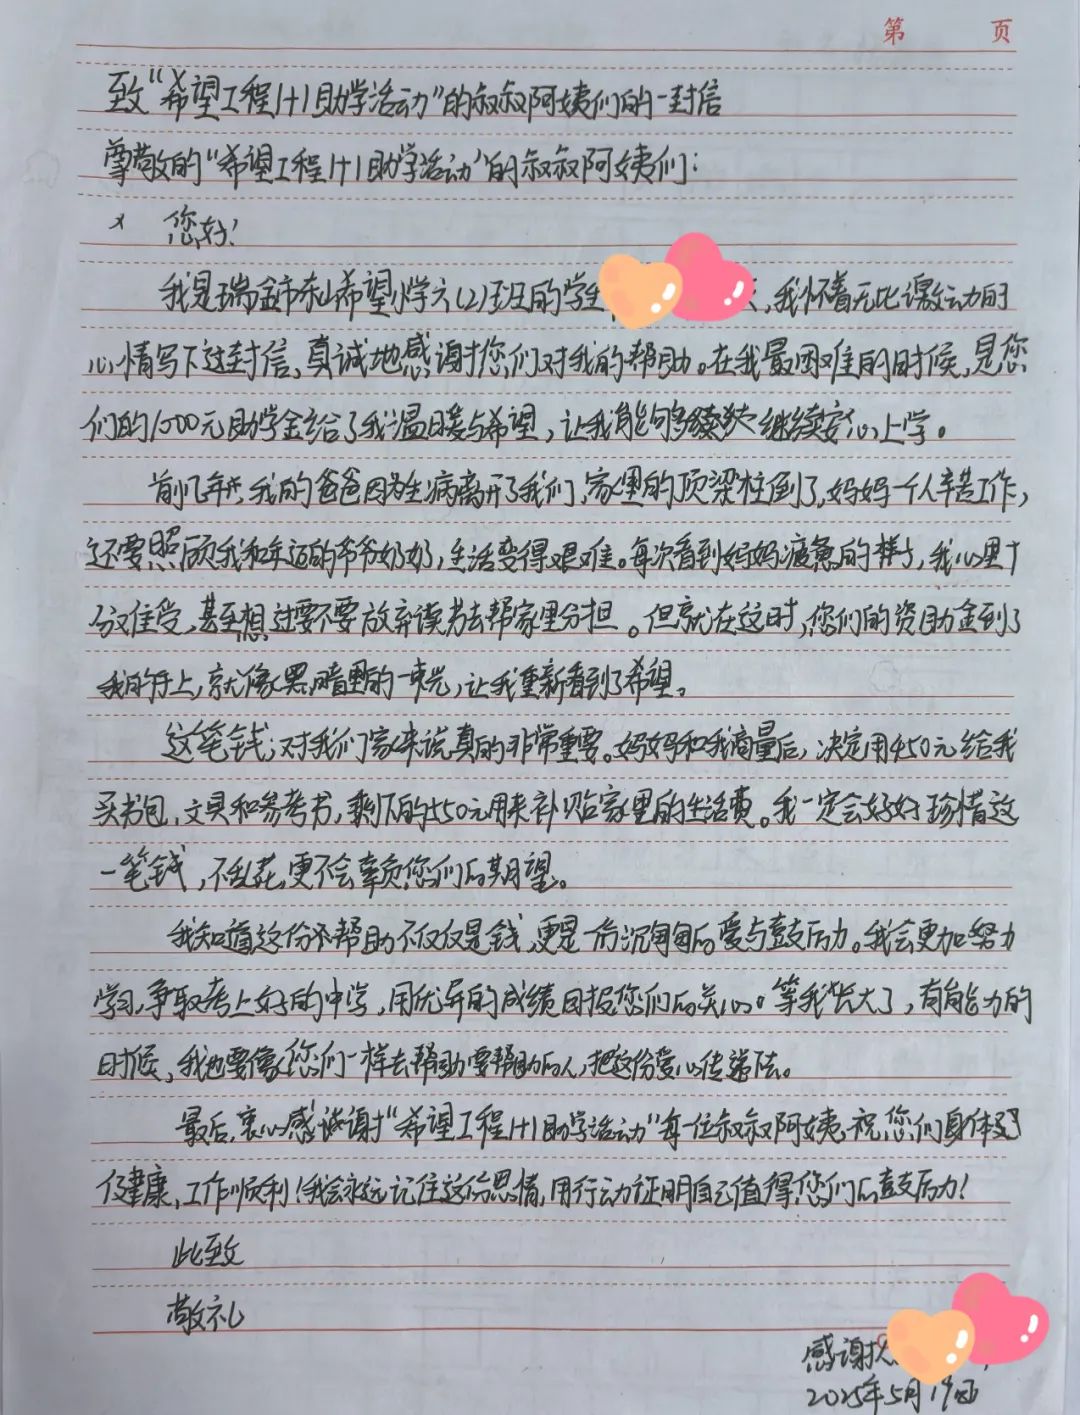 第 页
致“希望工程1+1助学活动”的叔叔阿姨们的一封信
尊敬的“希望工程1+1助学活动”的叔叔阿姨们：
您好！
我是瑞金市东山希望小学六(2)班的学生，我怀着无比激动的
心情写下这封信，真诚地感谢您们对我的帮助。在我最困难的时候，是您
们的1500元助学金给了我温暖与希望，让我能够继续安心上学。
前几年，我的爸爸因为生病离开了我们，家里的顶梁柱倒了，妈妈一个人辛苦工作，
还要照顾我和年迈的爷爷奶奶，生活变得艰难。每次看到妈妈疲惫的样子，我心里十
分难受，甚至想过要不要放弃读书去帮家里分担。但就在这时，您们的资助金到了
我的手上，就像黑暗里的一束光，让我重新看到了希望。
这笔钱，对我们家来说真的非常重要。妈妈和我商量后，决定用450元给我
买书包，文具和参考书，剩下的1050元用来补贴家里的生活费。我一定会好好珍惜这
一笔钱，不乱花，更不会辜负您们的期望。
我知道这份帮助不仅仅是钱，更是一份沉甸甸的爱与鼓励。我会更加努力
学习，争取考上好的中学，用优异的成绩回报您们的关心。等我长大了，有能力的
时候，我也要像您们一样去帮助需要帮助的人，把这份爱心传递下去。
最后，衷心感谢“希望工程1+1助学活动”每位叔叔阿姨，祝您们身体
健康，工作顺利！我会永远记住这份恩情，用行动证明自己值得您们的鼓励！
此致
敬礼
感谢
2025年5月19日